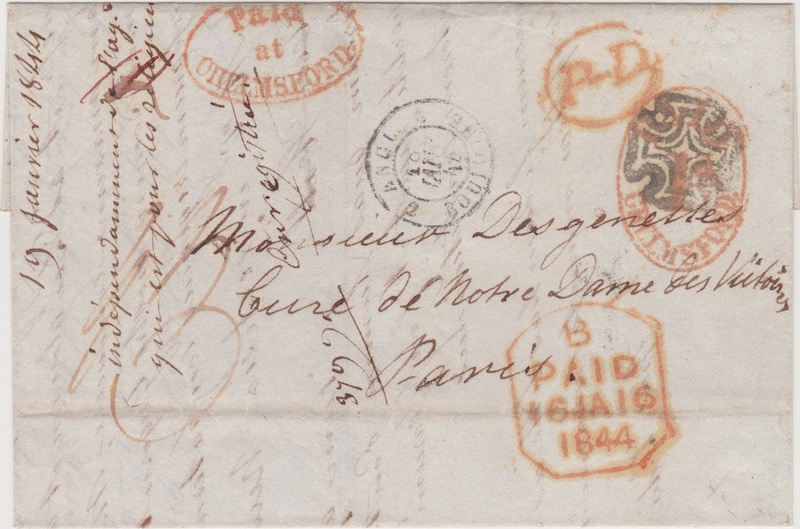 Paid
at
CHELMSFORD.
P.D.
ANGL. BOULOGNE
18
JANV.
44
2
CHELMSFORD
Monsieur Desgenettes
Curé de Notre Dame des Victoires
Paris.
B
PAID
16 JA 16
1844
19 Janvier 1844
indépendamment de
qui est pour les religieu
enregistrée